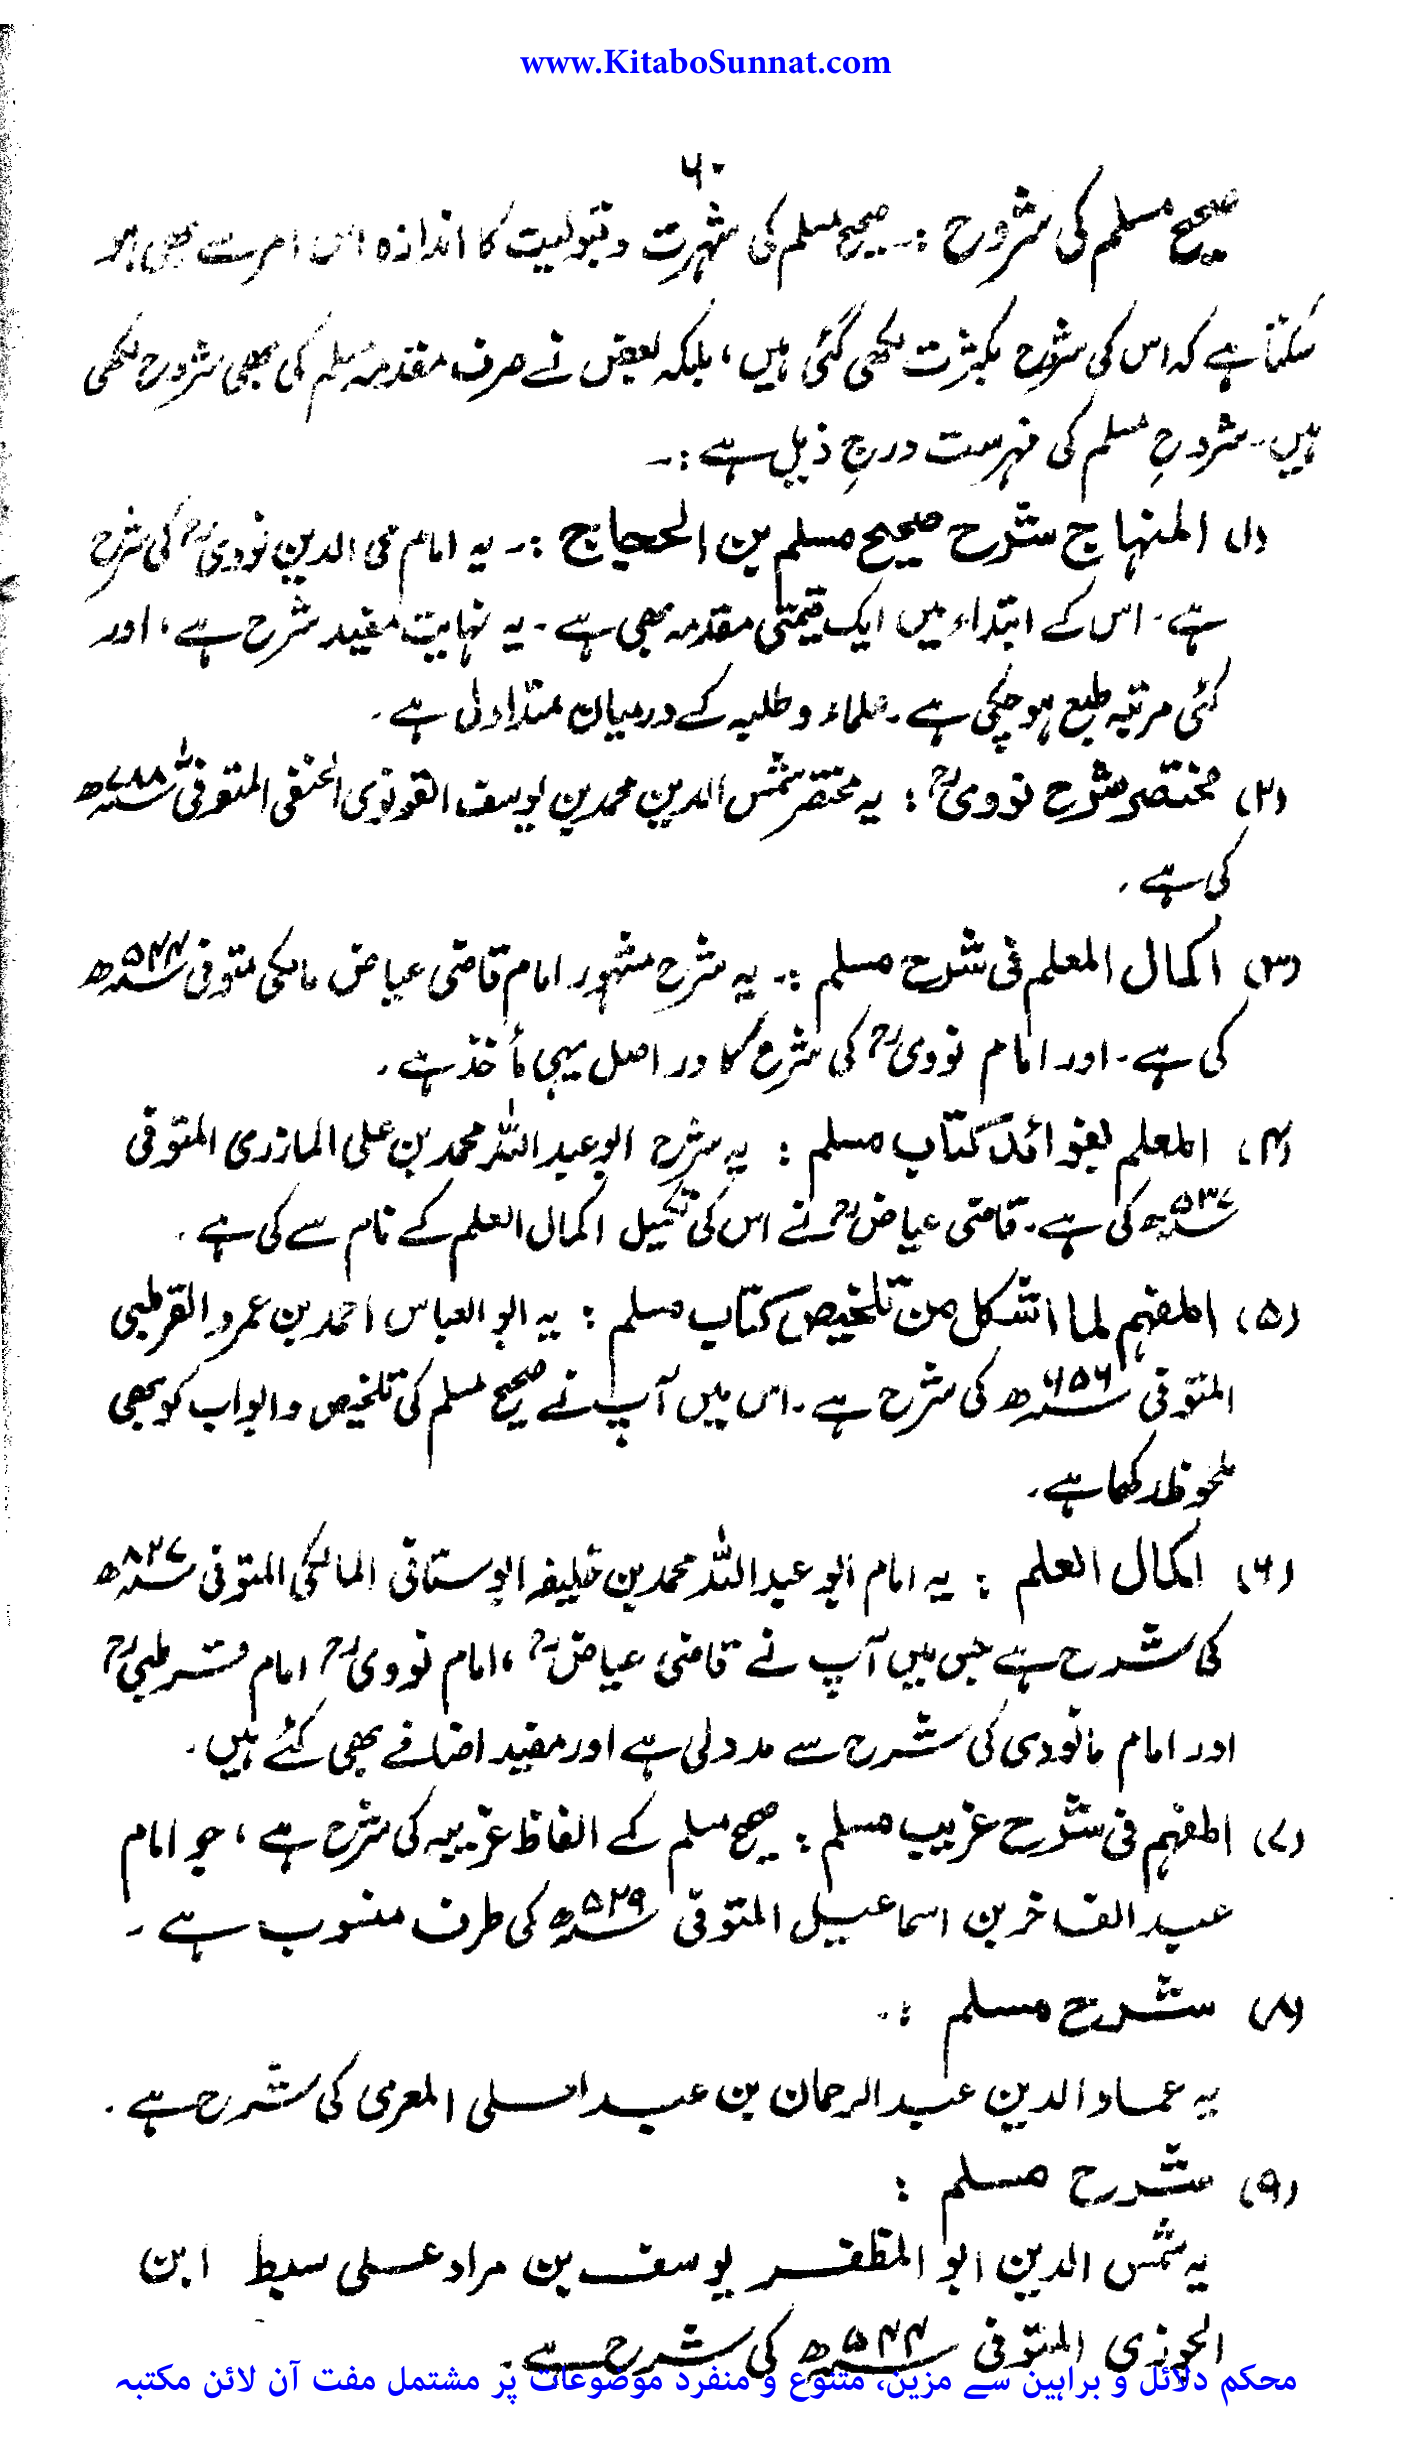 www.KitaboSunnat.com
۶۰
صحیح مسلم کی شروح :۔ صحیح مسلم کی شہرت و قبولیت کا اندازہ اس امر سے بھی ہو
سکتا ہے کہ اس کی شروح بکثرت لکھی گئی ہیں، بلکہ بعض نے صرف مقدمہ مسلم کی بھی شروح لکھی
ہیں۔ شروحِ مسلم کی فہرست درجِ ذیل ہے :۔
(۱) المنہاج شرح صحیح مسلم بن الحجاج :۔ یہ امام محی الدین نووی رح کی شرح
ہے۔ اس کے ابتداء میں ایک قیمتی مقدمہ بھی ہے۔ یہ نہایت مفید شرح ہے، اور
کئی مرتبہ طبع ہو چکی ہے۔ علماء و طلبہ کے درمیان متداول ہے۔
(۲) مختصر شرح نووی رح : یہ مختصر شمس الدین محمد بن یوسف القونوی الحنفی المتوفی ۷۸۸ھ
کی ہے۔
(۳) اکمال المعلم فی شرح مسلم :۔ یہ شرح مشہور امام قاضی عیاض مالکی متوفی ۵۴۴ھ
کی ہے۔ اور امام نووی رح کی شرح کا در اصل یہی مأخذ ہے۔
(۴) المعلم بفوائد کتاب مسلم : یہ شرح ابو عبد اللہ محمد بن علی المازری المتوفی
۵۳۶ھ کی ہے۔ قاضی عیاض رح نے اس کی تکمیل اکمال العلم کے نام سے کی ہے۔
(۵) المفہم لما اشکل من تلخیص کتاب مسلم : یہ ابو العباس احمد بن عمرو القرطبی
المتوفی ۶۵۶ھ کی شرح ہے۔ اس میں آپ نے صحیح مسلم کی تلخیص و ابواب کو بھی
ملحوظ رکھا ہے۔
(۶) اکمال العلم : یہ امام ابو عبد اللہ محمد بن خلیفہ ابوستانی المالکی المتوفی ۸۲۷ھ
کی شرح ہے جس میں آپ نے قاضی عیاض رح، امام نووی رح امام قرطبی رح
اور امام مانودی کی شرح سے مدد لی ہے اور مفید اضافے بھی کئے ہیں۔
(۷) المفہم فی شرح غریب مسلم : صحیح مسلم کے الفاظ غریبہ کی شرح ہے، جو امام
عبد الفاخر بن اسماعیل المتوفی ۵۲۹ھ کی طرف منسوب ہے۔
(۸) شرح مسلم :۔
یہ عماد الدین عبد الرحمان بن عبد اسلی المعری کی شرح ہے۔
(۹) شرح مسلم :
یہ شمس الدین ابو المظفر یوسف بن مراد علی سبط ابن
الجوزی المتوفی ۵۴۴ھ کی شرح ہے۔
محکم دلائل و براہین سے مزین، متنوع و منفرد موضوعات پر مشتمل مفت آن لائن مکتبہ